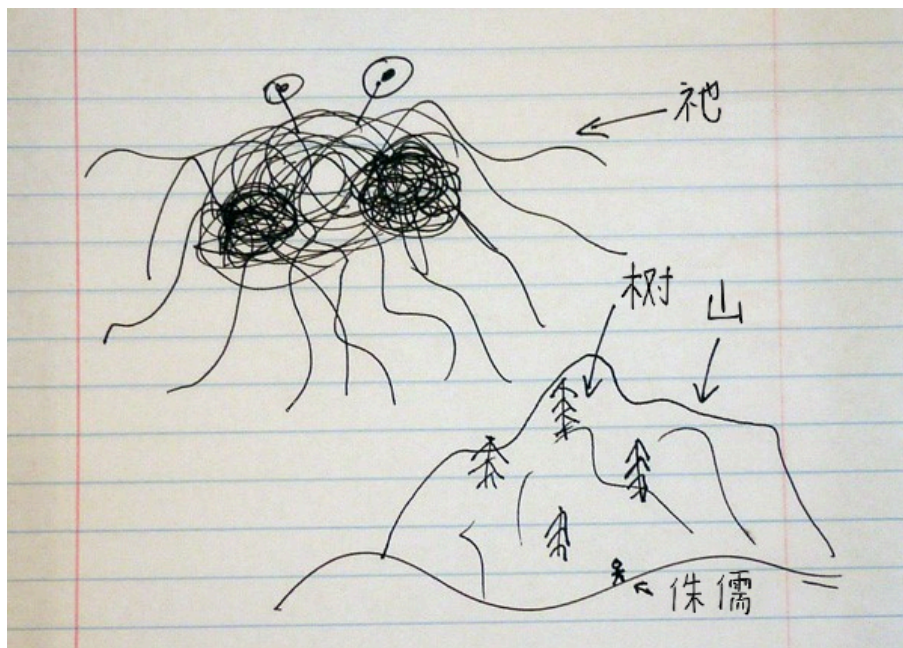 祂
树
山
侏儒